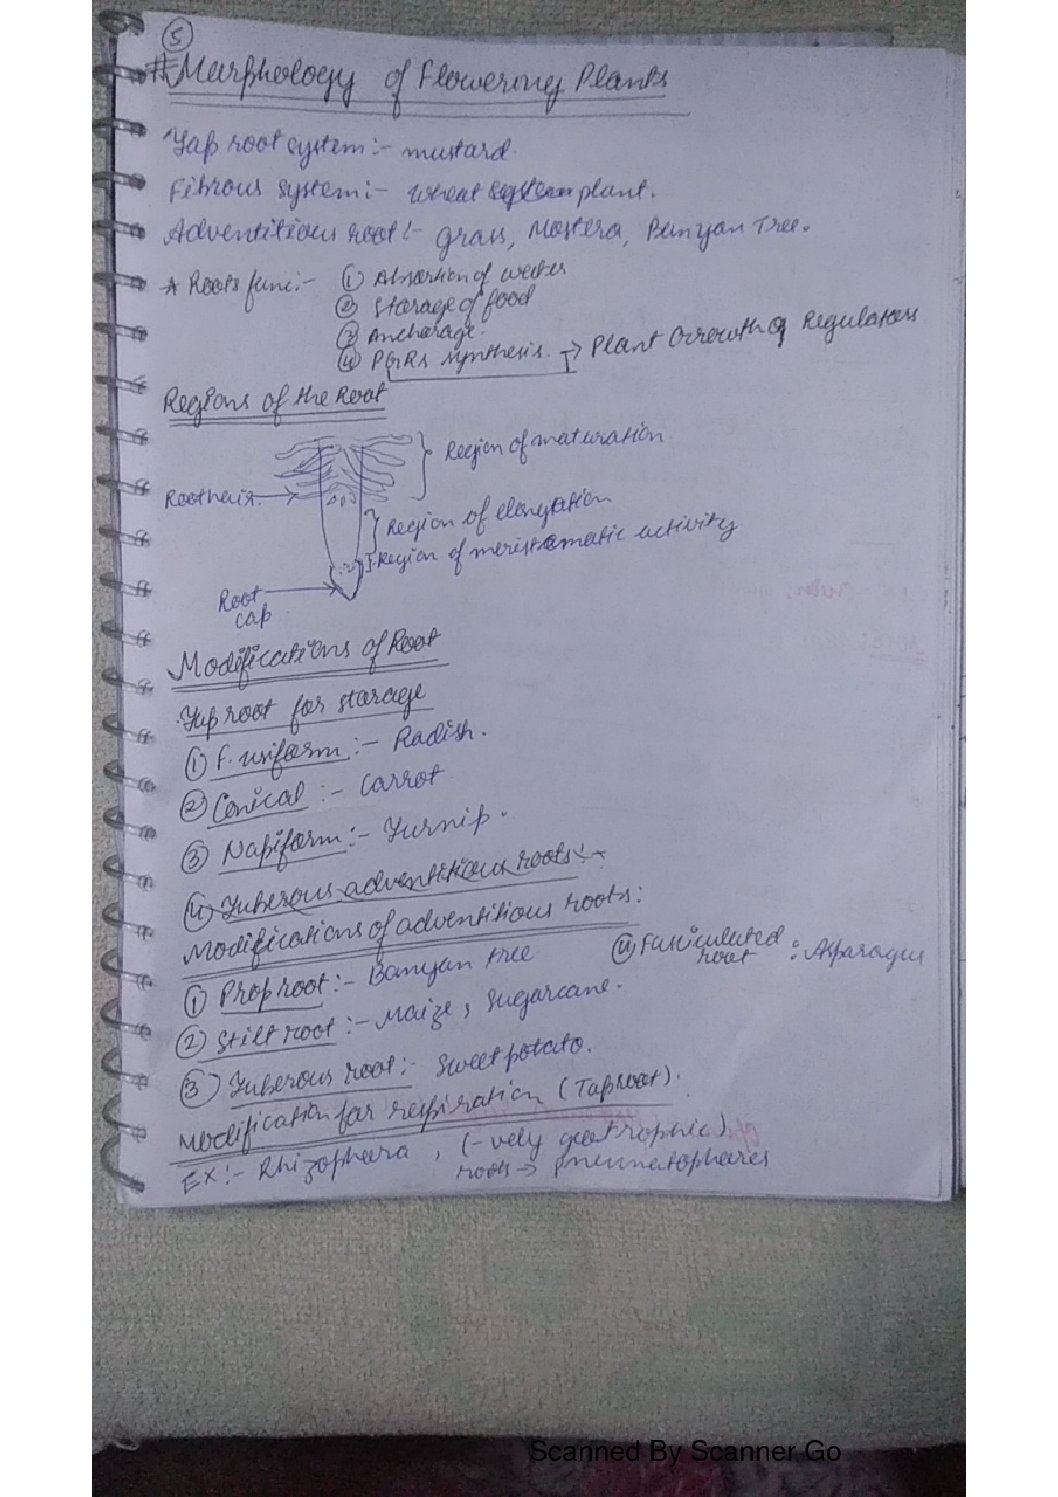 5
# Morphology of Flowering Plants
Tap root system :- mustard.
Fibrous system :- wheat plant.
Adventitious root :- grass, Mostera, Banyan Tree.
* Roots func :- ① Absortion of water
② Storage of food
③ Anchorage.
④ PGRs synthesis. → Plant Growth Regulators
Regions of the Root
Region of maturation.
Root hair.
Region of elongation
Region of meristematic activity
Root
cap
Modifications of Root
Tap root for storage
① Fusiform :- Radish.
② Conical :- Carrot
③ Napiform :- Turnip.
④ Tuberous adventitious roots :-
Modifications of adventitious roots:
① Prop root :- Banyan tree
④ Fasiculated root : Asparagus
② Stilt root :- Maize, Sugarcane.
③ Tuberous root :- Sweet potato.
Modification for respiration (Tap root).
Ex :- Rhizophora, (-vely geotrophic)
roots → pneumatophores
Scanned By Scanner Go